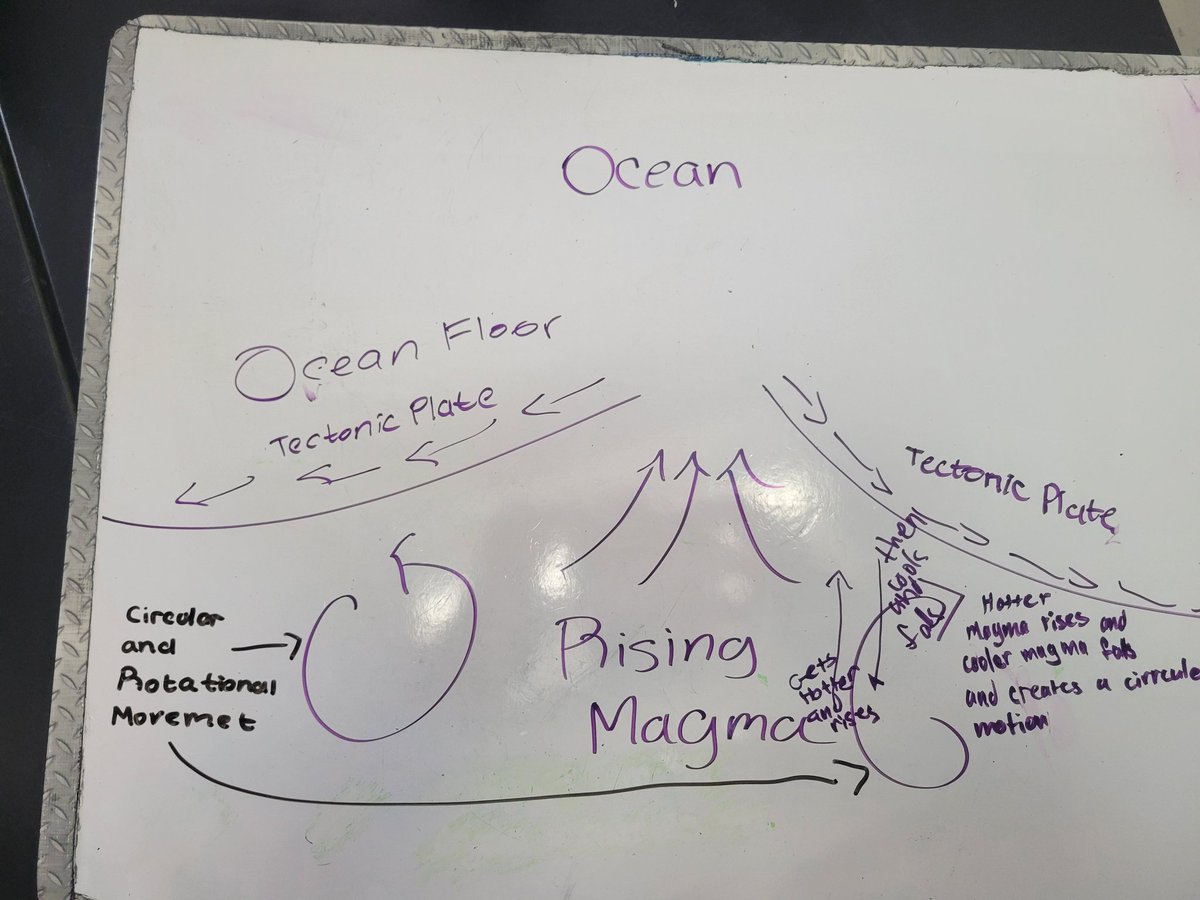 Ocean
Ocean Floor
Tectonic Plate
Tectonic Plate
Circular
and
Rotational
Moremet
Rising
Magma
Gets
Hotter
and
rises
then
cools
and
falls
Hotter
magma rises and
cooler magma falls
and creates a cirrcule
motion